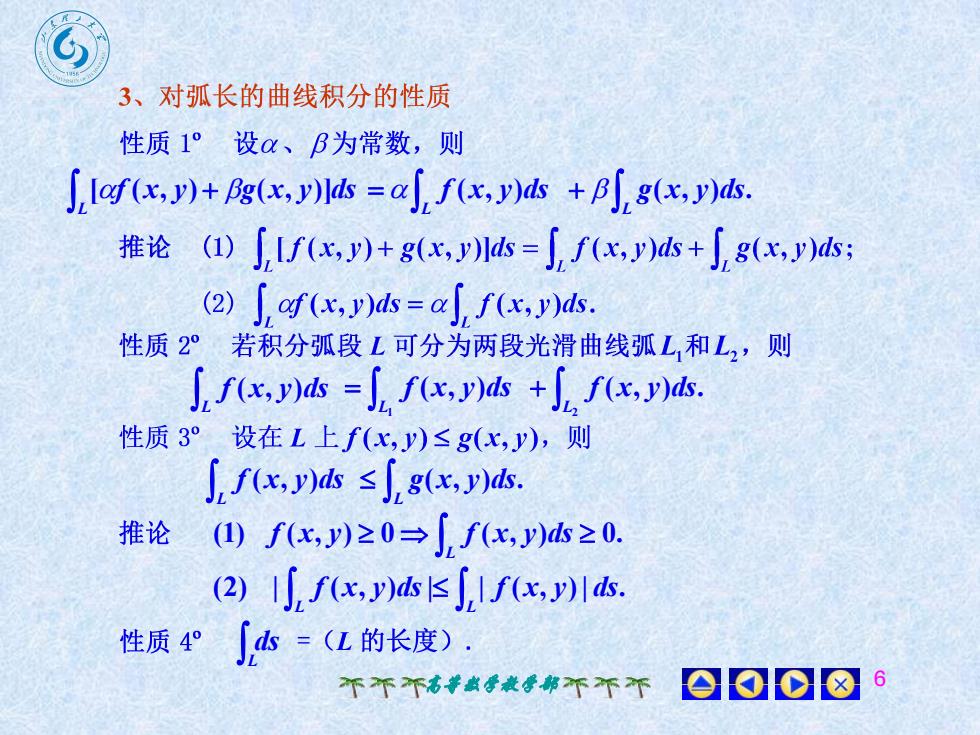 3、对弧长的曲线积分的性质
性质 1º 设α、β为常数，则
∫_L [αf(x, y) + βg(x, y)]ds = α∫_L f(x, y)ds + β∫_L g(x, y)ds.
推论 (1) ∫_L [f(x, y) + g(x, y)]ds = ∫_L f(x, y)ds + ∫_L g(x, y)ds;
(2) ∫_L αf(x, y)ds = α∫_L f(x, y)ds.
性质 2º 若积分弧段 L 可分为两段光滑曲线弧L₁和L₂，则
∫_L f(x, y)ds = ∫_{L₁} f(x, y)ds + ∫_{L₂} f(x, y)ds.
性质 3º 设在 L 上 f(x, y) ≤ g(x, y)，则
∫_L f(x, y)ds ≤ ∫_L g(x, y)ds.
推论 (1) f(x, y) ≥ 0 ⇒ ∫_L f(x, y)ds ≥ 0.
(2) |∫_L f(x, y)ds| ≤ ∫_L |f(x, y)|ds.
性质 4º ∫_L ds =（L 的长度）.
高等数学教学部
6